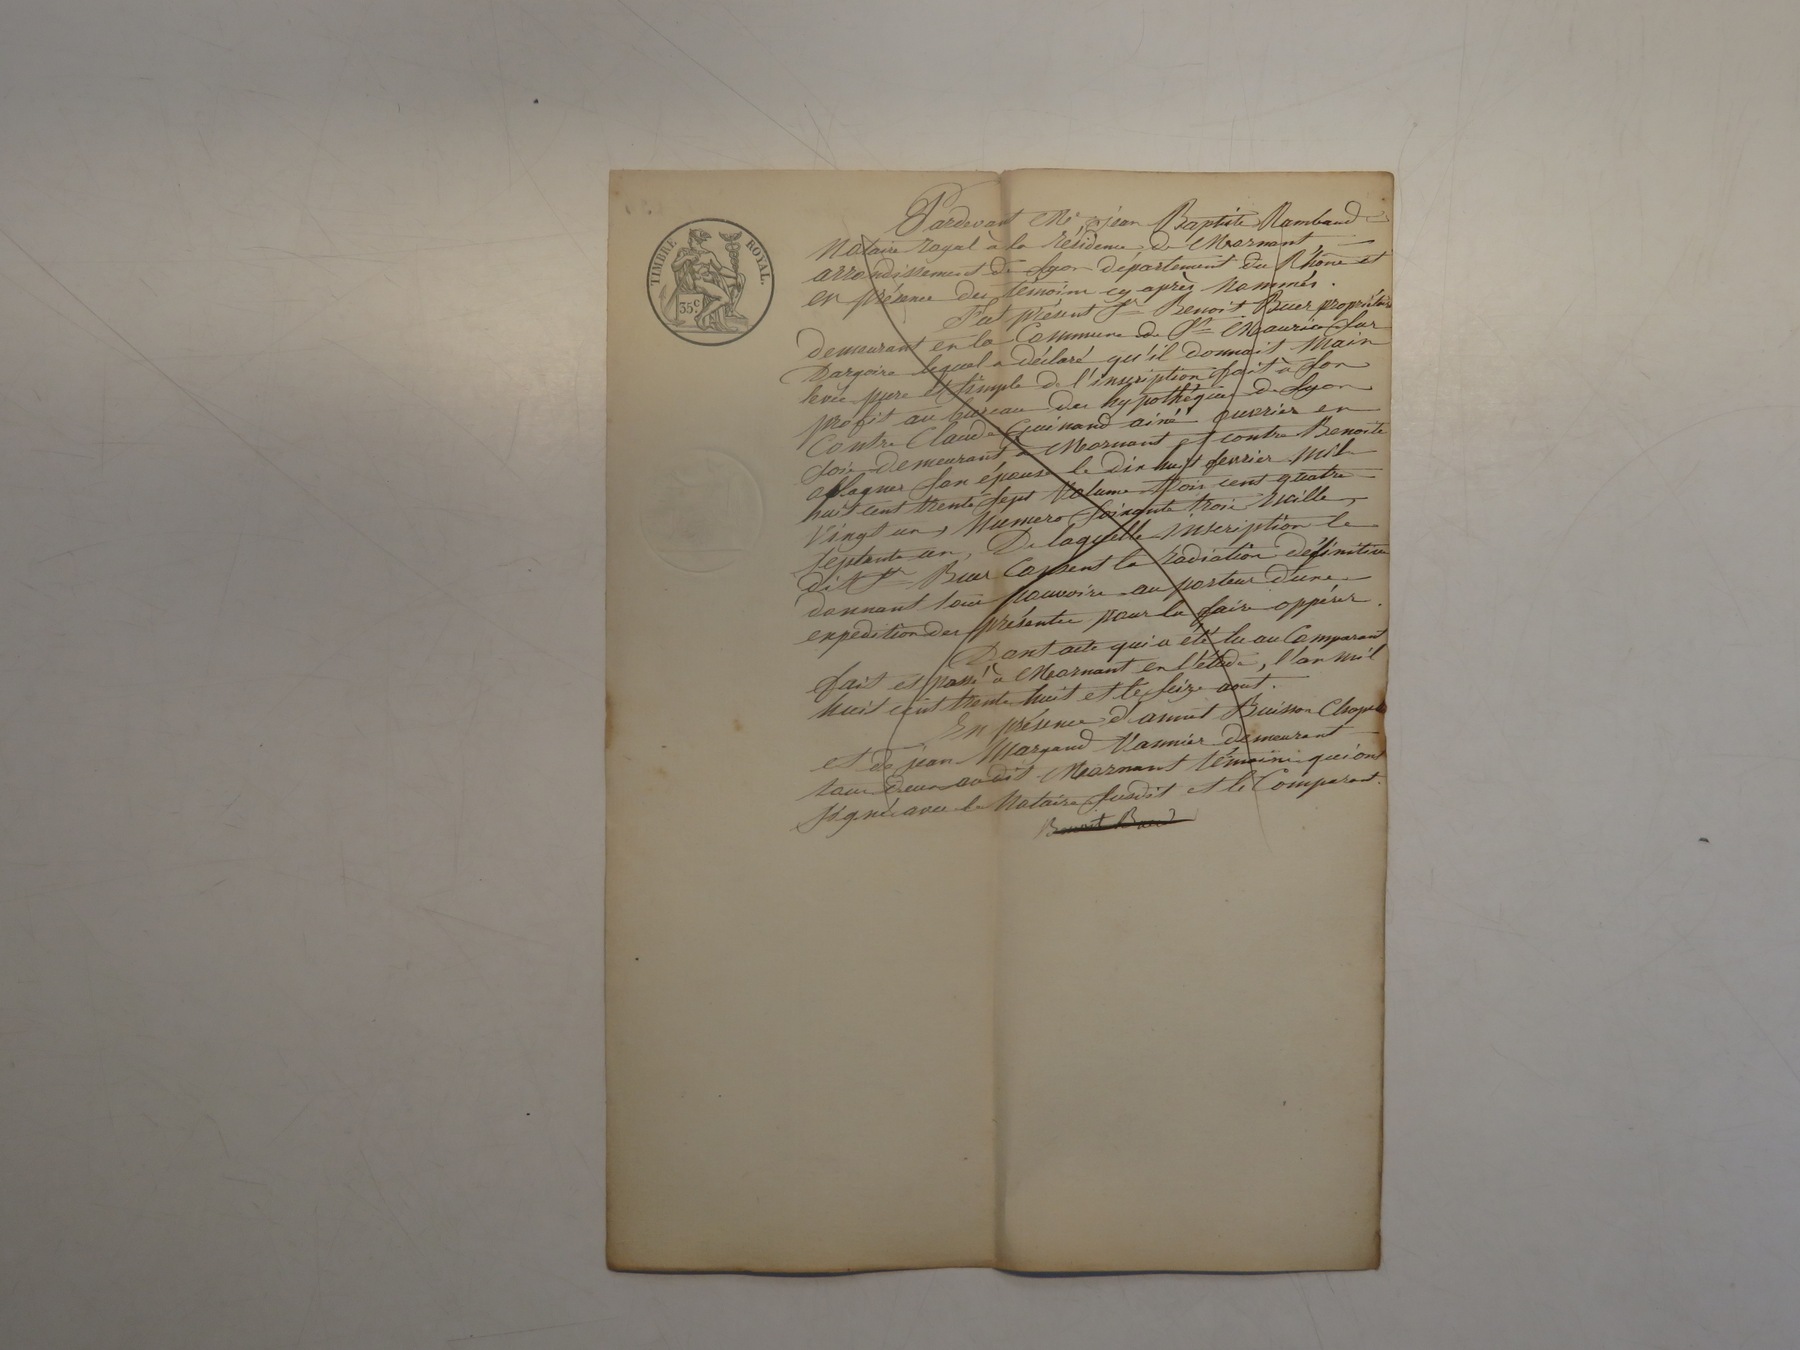 TIMBRE ROYAL.
35.c
Pardevant Me jean Baptiste Rambaud
Notaire royal à la résidence de Mornant
arrondissement de Lyon département du Rhône et
en présence des témoins cy après nommés.
Fut présent Sr Benoit Buer propriétaire
demeurant en la Commune de St Maurice sur
Dargoire lequel a déclaré qu'il donnait main
levée pure et simple de l'inscription fait à son
profit au bureau des hypothéques de Lyon
Contre Claude Guinand ainé ouvrier en
soie demeurant à Mornant et contre Benoite
son épouse le dix huit fevrier mil
huit cent trente sept Volume trois cent quatre
vingt un, Numero soixante trois mille
septante un, De laquelle inscription le
dit Sr Buer Consent la radiation définitive
donnant tous pouvoirs au porteur d'une
expedition des présentes pour la faire oppérer.
Dont acte qui a été lu au Comparant
fait et passé à Mornant en l'étude, l'an mil
huit cent trente huit et le seize aout.
En présence d'annet Buisson
et de jean Margand Vannier demeurant
tous deux audit Mornant témoins qui ont
signé avec le Notaire susdit et le Comparant.
Benoit